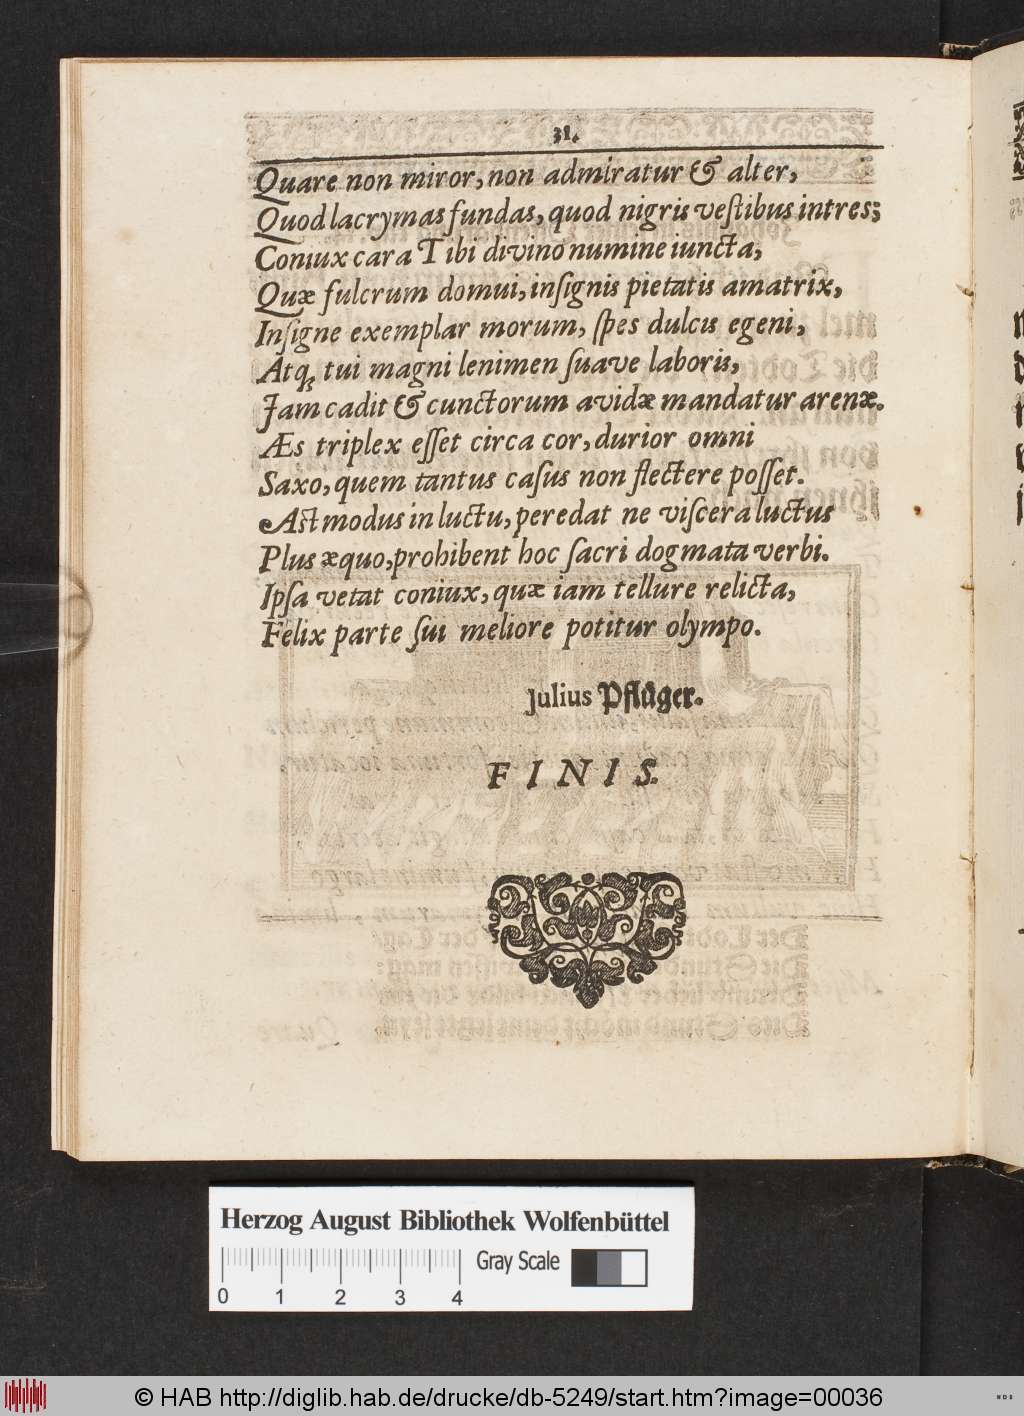 31.
Quare non miror, non admiratur & alter,
Quod lacrymas fundas, quod nigris veſtibus intres;
Coniux cara Tibi divino numine iuncta,
Quæ fulcrum domui, inſignis pietatis amatrix,
Inſigne exemplar morum, ſpes dulcis egeni,
Atq; tui magni lenimen ſuave laboris,
Jam cadit & cunctorum avidæ mandatur arenæ.
Æs triplex eſſet circa cor, durior omni
Saxo, quem tantus caſus non flectere poſſet.
Aſt modus in luctu, peredat ne viſcera luctus
Plus æquo, prohibent hoc ſacri dogmata verbi.
Ipſa vetat coniux, quæ iam tellure relicta,
Felix parte ſui meliore potitur olympo.
Julius Pflüger.
FINIS.
Herzog August Bibliothek Wolfenbüttel
Gray Scale
0 1 2 3 4
© HAB http://diglib.hab.de/drucke/db-5249/start.htm?image=00036